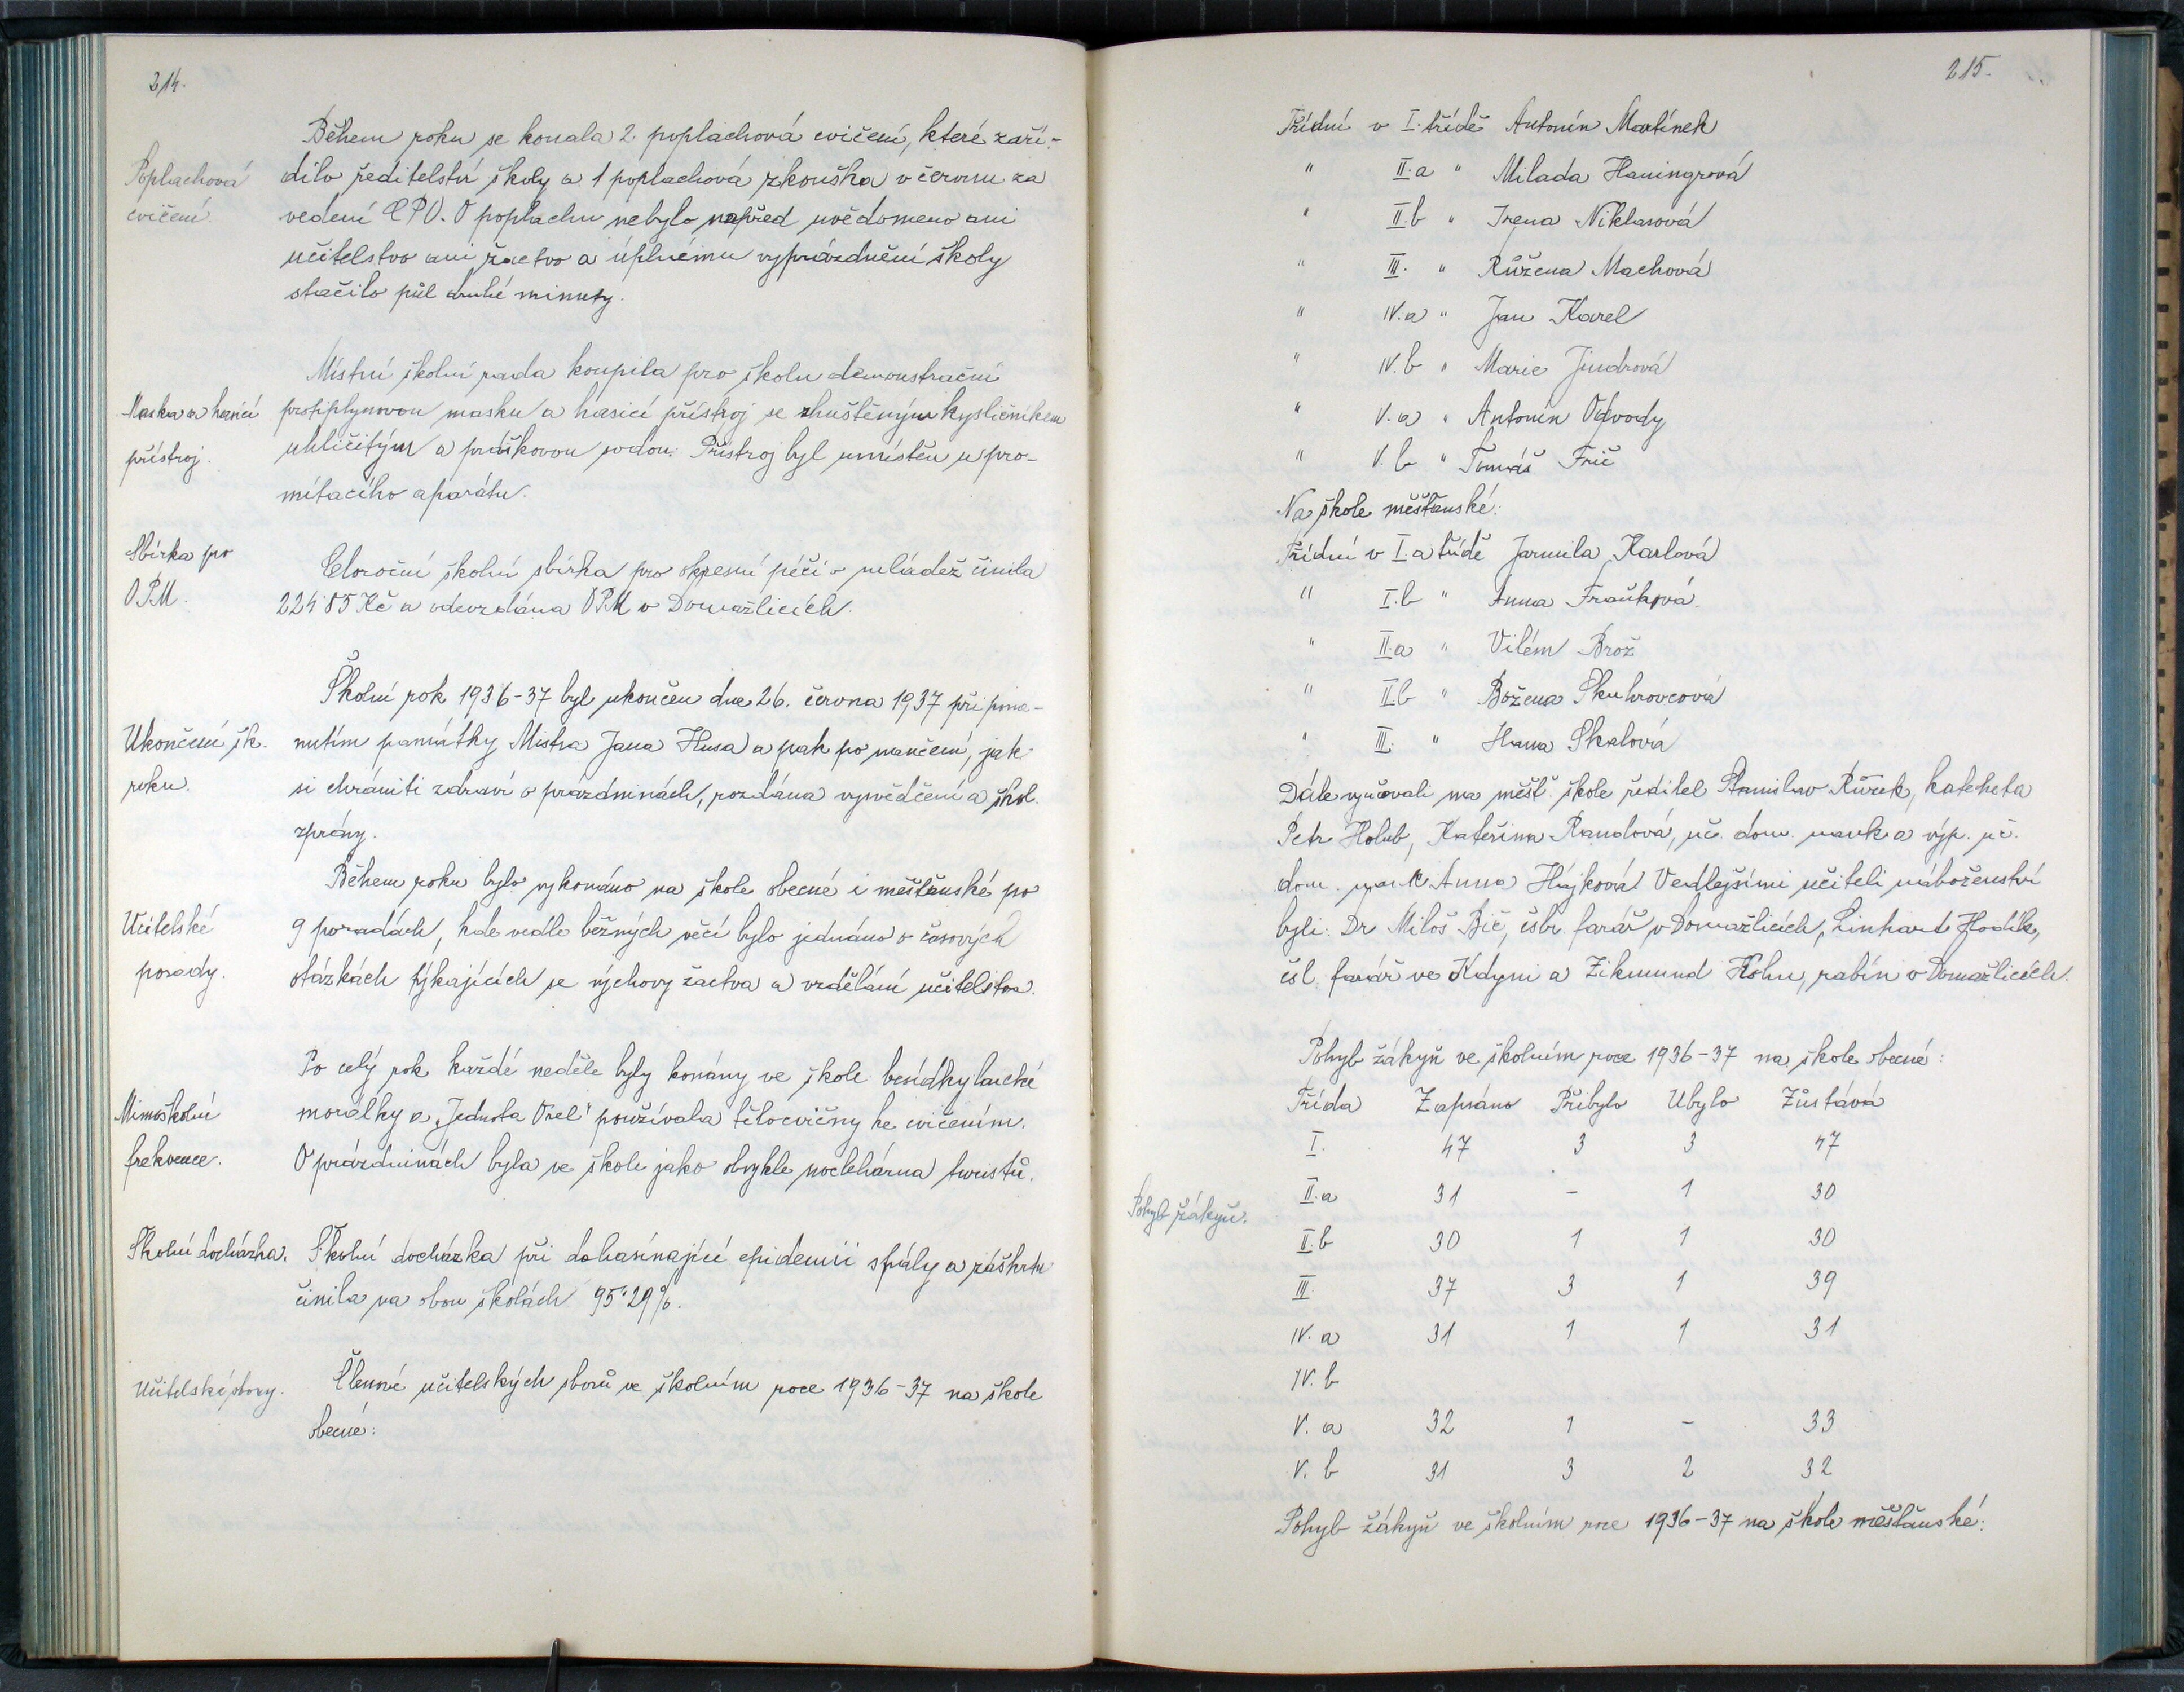 214.
Během roku se konala 2 poplachová cvičení, které zaří-
Poplachová
cvičení.
dilo ředitelství školy a 1 poplachová zkouška v červnu za
vedení CPO. O poplachu nebylo napřed uvědomeno ani
učitelstvo ani žactvo a úplnému vyprázdnění školy
stačilo půl druhé minuty.
Místní školní rada koupila pro školu demonstrační
Maska a hasicí
přístroj.
protiplynovou masku a hasicí přístroj se zhuštěným kysličníkem
uhličitým a práškovou sodou. Přístroj byl umístěn u pro-
mítacího aparátu.
Sbírka pro
OPM.
Celoroční školní sbírka pro okresní péči o mládež činila
224·85 Kč a odevzdána OPM v Domažlicích.
Školní rok 1936-37 byl ukončen dne 26. června 1937 připome-
Ukončení šk.
roku.
nutím památky Mistra Jana Husa a pak po naučení, jak
si chrániti zdraví o prázdninách, rozdána vysvědčení a škol.
zprávy.
Během roku bylo vykonáno na škole obecné i měšťanské po
Učitelské
porady.
9 poradách, kde vedle běžných věcí bylo jednáno o časových
otázkách týkajících se výchovy žactva a vzdělání učitelstva.
Po celý rok každé neděle byly konány ve škole besídky laické
Mimoškolní
frekvence.
morálky a „Jednota Orel" používala tělocvičny ke cvičením.
O prázdninách byla ve škole jako obvykle noclehárna turistů.
Školní docházka.
Školní docházka při dohasínající epidemii spály a záškrtu
činila na obou školách 95·29%.
Učitelské sbory.
Členové učitelských sborů ve školním roce 1936-37 na škole
obecné:
215.
Třídní v I. třídě Antonín Martínek
" II.a " Milada Haningrová
" II.b " Irena Niklasová
" III. " Růžena Machová
" IV.a " Jan Karel
" IV.b " Marie Jindrová
" V.a " Antonín Odvody
" V.b " Tomáš Frič
Na škole měšťanské:
Třídní v I.a třídě Jarmila Karlová
" I.b " Anna Fraňková
" II.a " Vilém Brož
" II.b " Božena Skuhrovcová
" III. " Hana Skalová
Dále vyučovali na měšť. škole ředitel Stanislav Růžek, katecheta
Petr Holub, Kateřina Randová, uč. dom. nauk a výp. uč.
dom. nauk Anna Hájková. Vedlejšími učiteli náboženství
byli: Dr Miloš Bič, čsbr. farář v Domažlicích, Linhart Hodík,
čsl. farář ve Kdyni a Zikmund Kohn, rabín v Domažlicích.
Pohyb žákyň ve školním roce 1936-37 na škole obecné:
Třída Zapsáno Přibylo Ubylo Zůstává
I. 47 3 3 47
Pohyb žákyň.
II.a 31 - 1 30
II.b 30 1 1 30
III. 37 3 1 39
IV.a 31 1 1 31
IV.b
V.a 32 1 - 33
V.b 31 3 2 32
Pohyb žákyň ve školním roce 1936-37 na škole měšťanské: